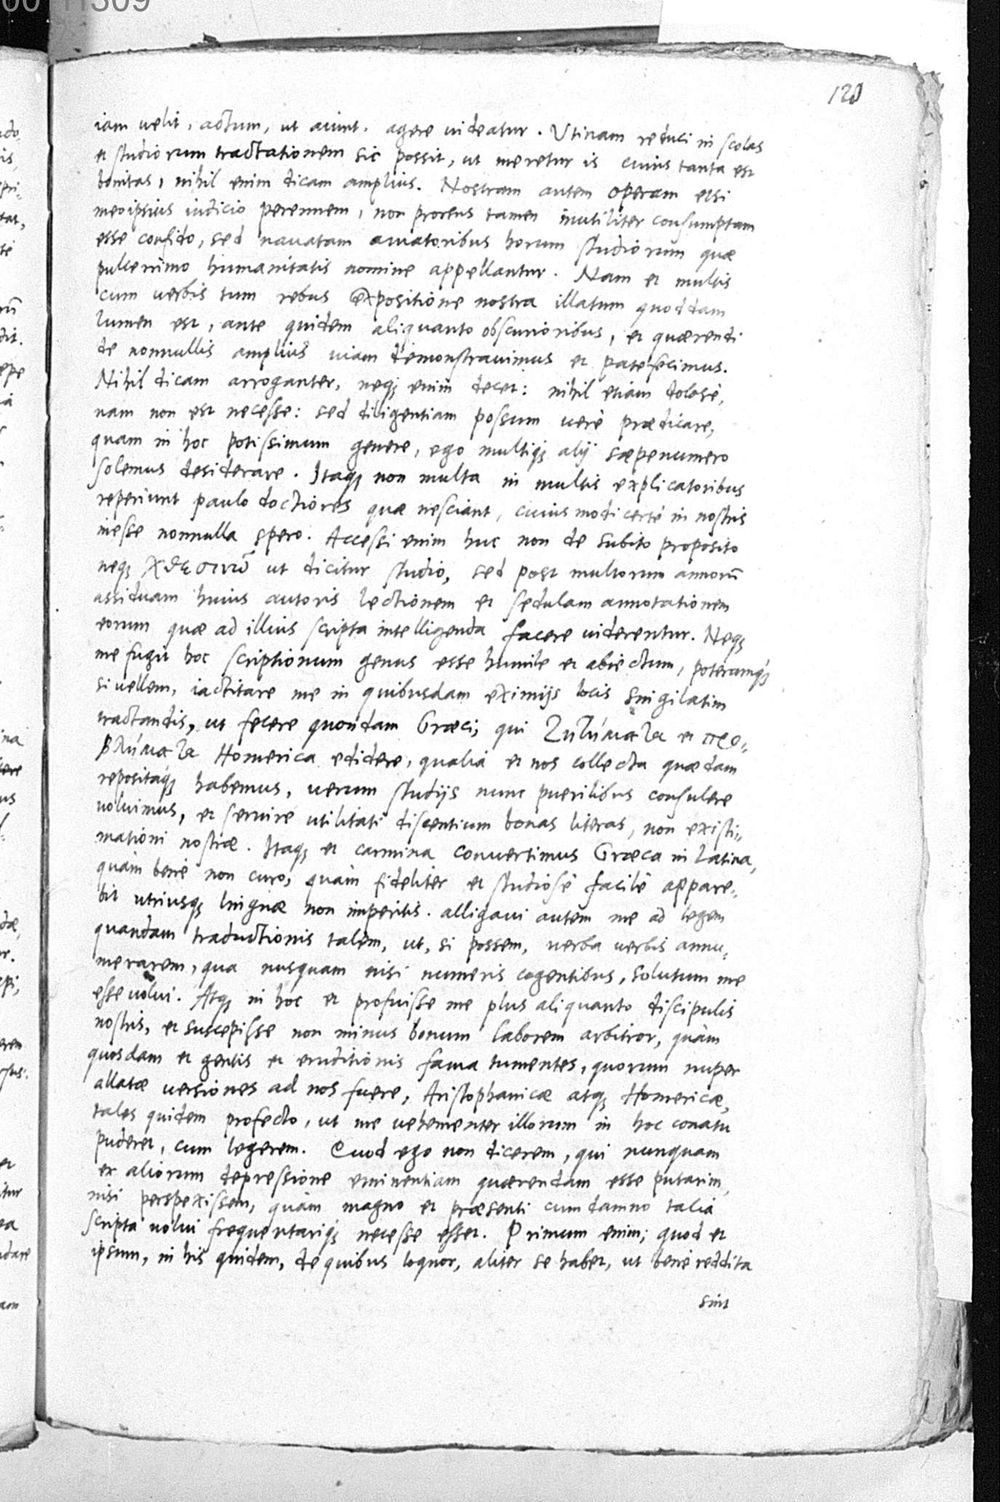 120
iam velit, actum, ut aiunt, agere videatur. Utinam reduci in scolas
et studiorum tractationem sic possit, ut meretur is cuius tanta est
bonitas, nihil enim dicam amplius. Nostram autem operam etsi
meoipsius iudicio perennem, non prorsus tamen inutiliter consumptam
esse confido, sed navatam amatoribus horum studiorum quæ
pulcerrimo humanitatis nomine appellantur. Nam et multis
cum verbis tum rebus expositione nostra illatum quoddam
lumen est, ante quidem aliquanto obscurioribus, et quærendi
de nonnullis amplius viam demonstravimus et patefecimus.
Nihil dicam arroganter, neq; enim decet: nihil etiam dolosè,
nam non est necesse: sed diligentiam possum verè prædicare,
quam in hoc potissimum genere, ego multiq; alij sæpenumero
solemus desiderare. Itaq; non multa in multis explicatoribus
reperiunt paulo doctiores quæ nesciant, cuiusmodi certè in nostris
inesse nonnulla spero. Accessi enim huc non de subito proposito
neq; χθεσινῷ ut dicitur studio, sed post multorum annorū
assiduam huius autoris lectionem et sedulam annotationem
eorum quæ ad illius scripta intelligenda facere viderentur. Neq;
me fugit hoc scriptionum genus esse humile et abiectum, poteramq;
si vellem, iactitare me in quibusdam eximijs locis singilatim
tractandis, ut fecere quondam Græci, qui ζητήματα et προ-
βλήματα Homerica edidere, qualia et nos collecta quædam
repositaq; habemus, verum studijs nunc puerilibus consulere
voluimus, et servire utilitati discentium bonas literas, non existi-
mationi nostræ. Itaq; et carmina convertimus Græca in Latina,
quàm benè non curo, quàm fideliter et studiosè facilè appare-
bit utriusq; linguæ non imperitis. alligavi autem me ad legem
quandam traductionis talem, ut, si possem, verba verbis annu-
merarem, qua nusquam nisi numeris cogentibus, solutum me
esse volui. Atq; in hoc et profuisse me plus aliquanto discipulis
nostris, et suscepisse non minus bonum laborem arbitror, quàm
quosdam et gentis et eruditionis fama tumentes, quorum nuper
allatæ versiones ad nos fuere, Aristophanicæ atq; Homericæ,
tales quidem profecto, ut me vehementer illorum in hoc conatu
puderet, cum legerem. Quod ego non dicerem, qui nunquam
ex aliorum depressione eminentiam quærendam esse putarim,
nisi perspexissem, quàm magno et præsenti cum damno talia
scripta volvi frequentariq; necesse esset. Primum enim, quod et
ipsum, in his quidem, de quibus loquor, aliter se habet, ut benè reddita
sint